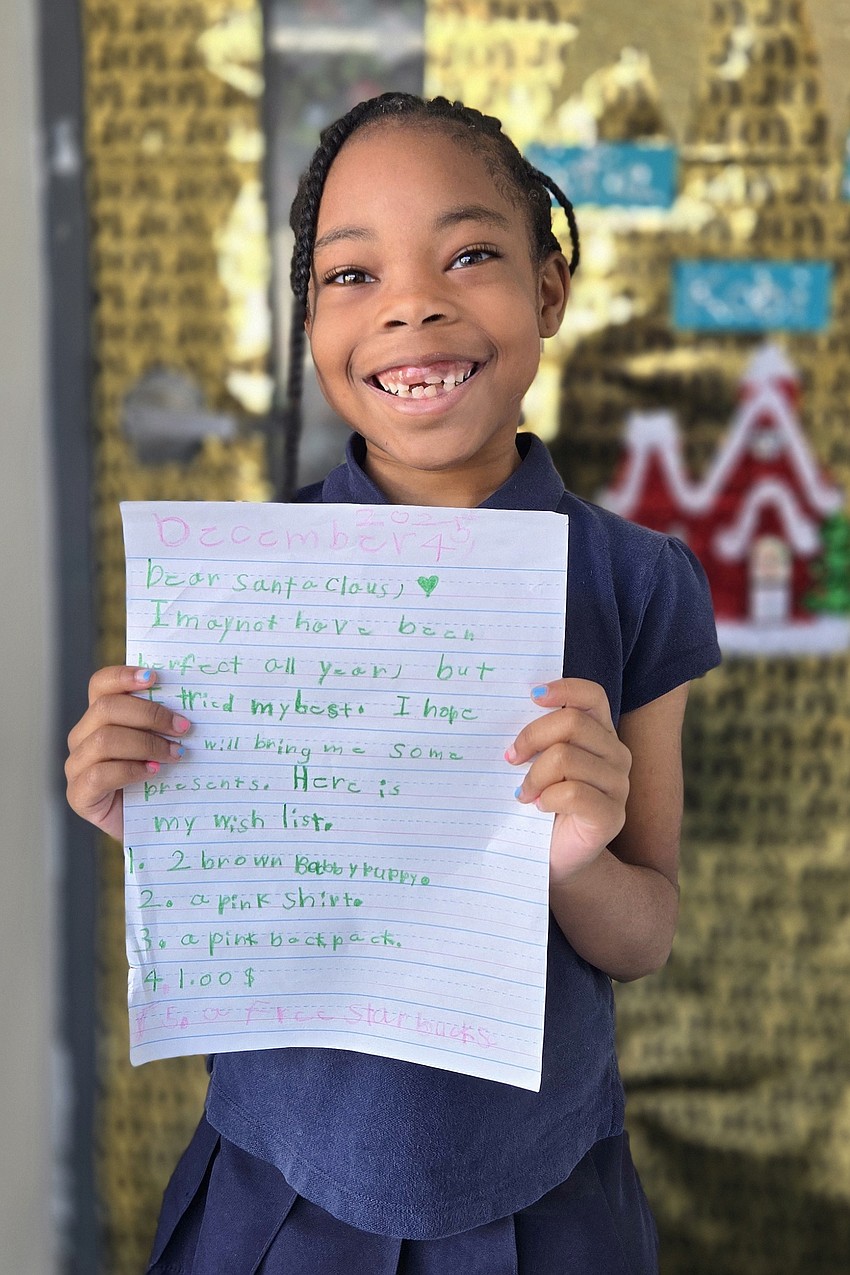 December 4,
Dear Santa Claus,
I may not have been
perfect all year, but
I tried my best. I hope
will bring me some
presents. Here is
my wish list.
1. 2 brown Babby puppy.
2. a pink shirt.
3. a pink backpack.
4. 1.00 $
5. a Free starbucks
Kobi